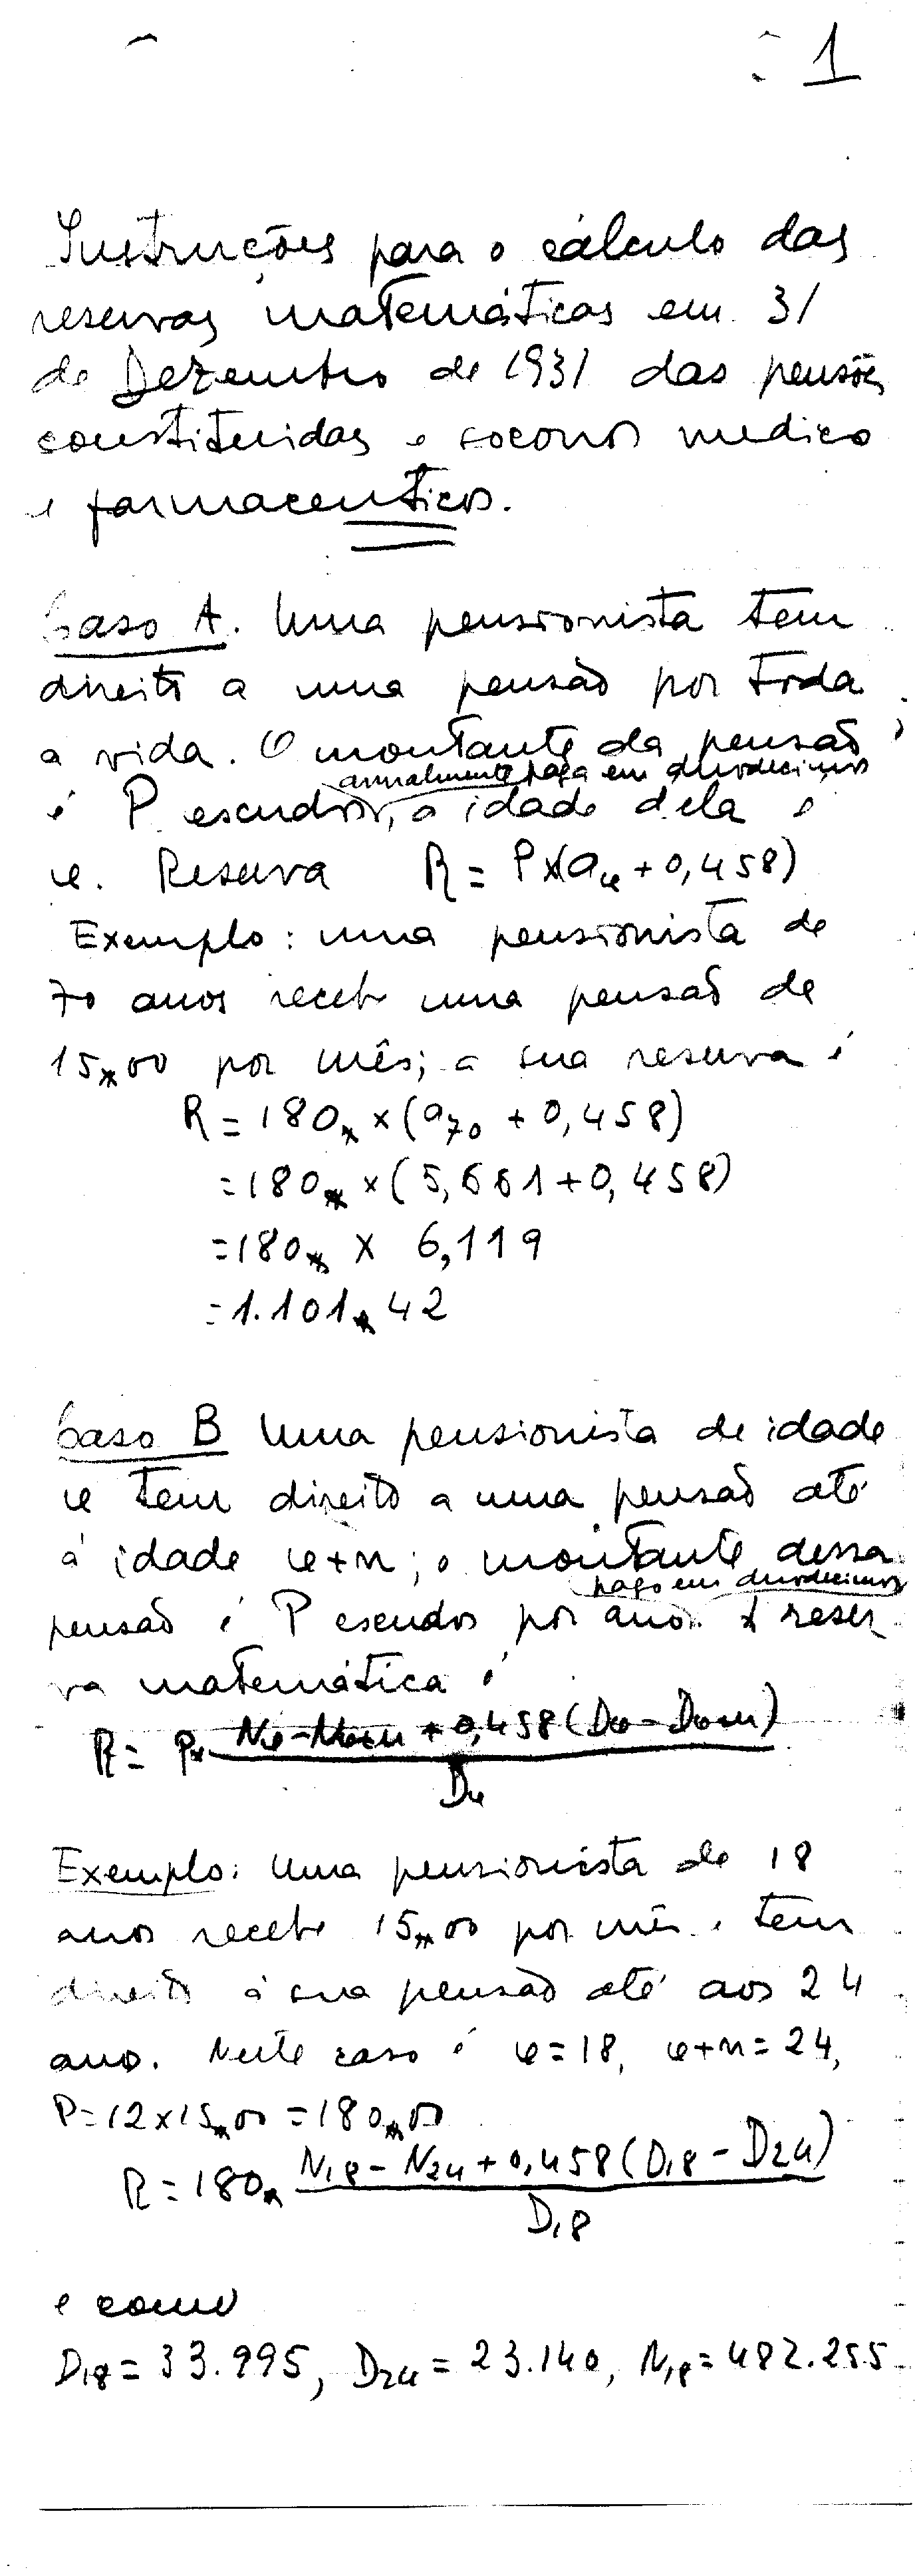 1
Instruções para o cálculo das
reservas matemáticas em 31
de Dezembro de 1931 das pensões
constituidas e socorros medico
e farmaceuticos.
Caso A. Uma pensionista tem
direito a uma pensão por toda
a vida. O montante da pensão,
anualmente paga em duodecimos
é P escudos, a idade dela é
x. Reserva R = P×(ax + 0,458)
Exemplo: uma pensionista de
70 anos recebe uma pensão de
15$00 por mês; a sua reserva é
R = 180$ × (a70 + 0,458)
= 180$ × (5,661 + 0,458)
= 180$ × 6,119
= 1.101$42
Caso B Uma pensionista de idade
x tem direito a uma pensão até
á idade x+n; o montante dessa
pago em duodecimos
pensão é P escudos por ano. A reser
va matemática é
R = P× Nx - Nx+n + 0,458 (Dx - Dx+n)
Dx
Exemplo: Uma pensionista de 18
anos recebe 15$00 por mês e tem
direito á sua pensão até aos 24
ano. Neste caso é x=18, x+n=24,
P=12×15$00 = 180$00
R = 180$ N18 - N24 + 0,458 (D18 - D24)
D18
e como
D18 = 33.995, D24 = 23.140, N18 = 482.255